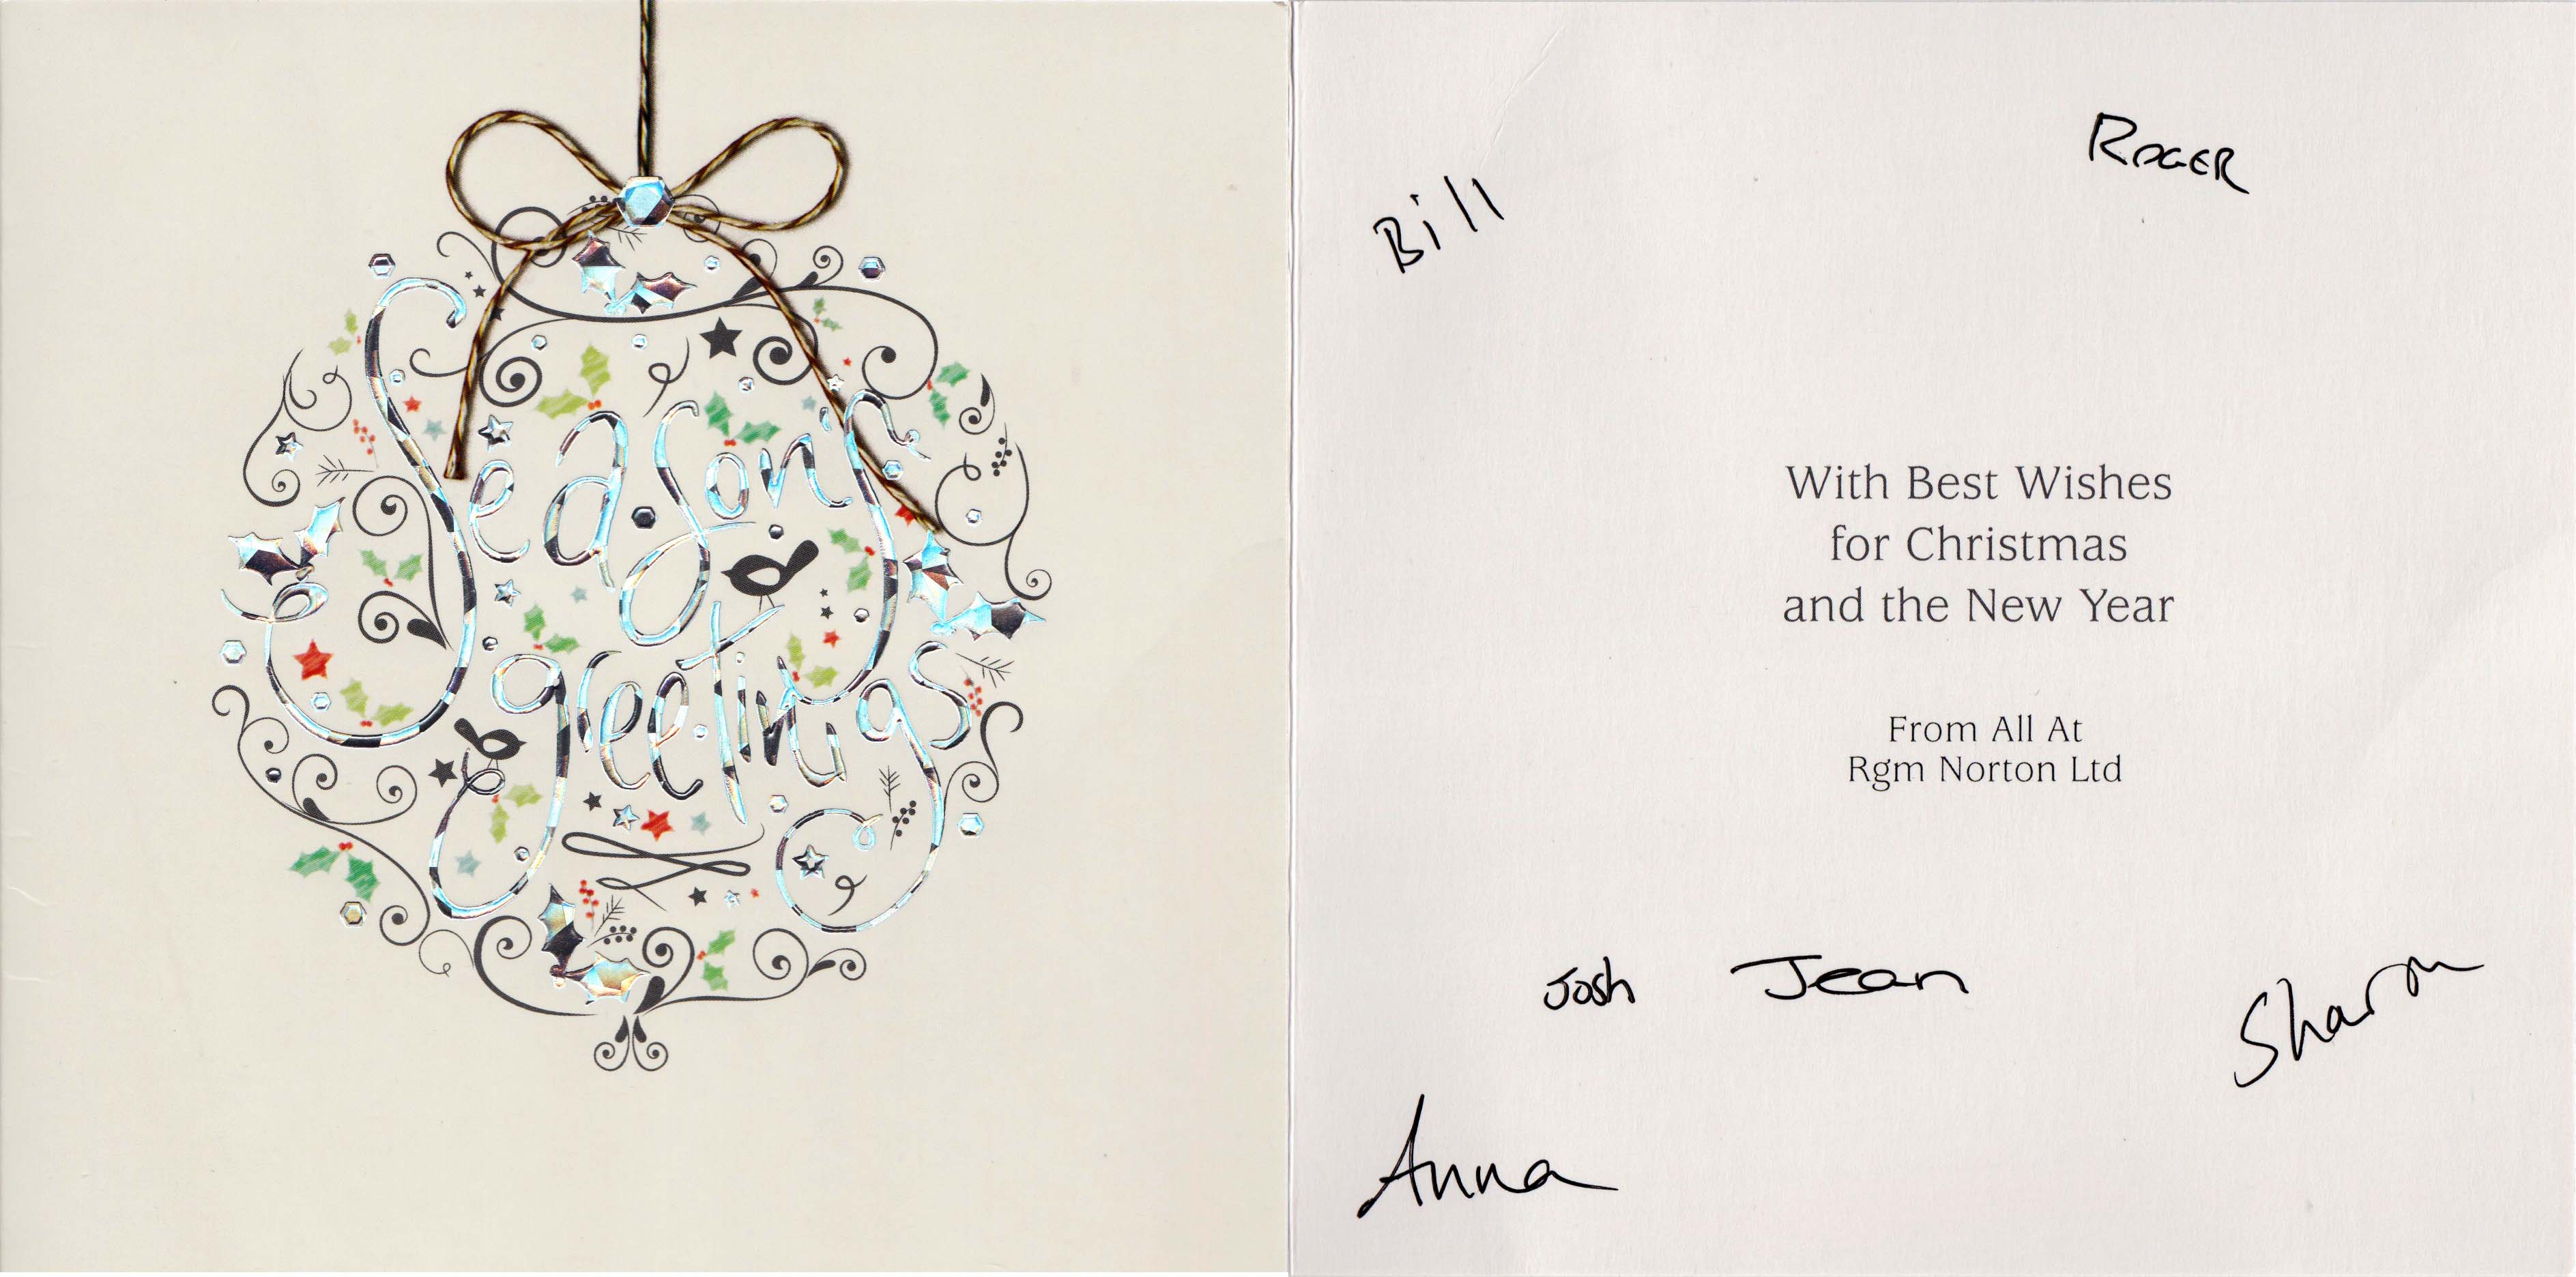 Season's
greetings
Roger
Bill
With Best Wishes
for Christmas
and the New Year
From All At
Rgm Norton Ltd
Josh Jean
Sharon
Anna